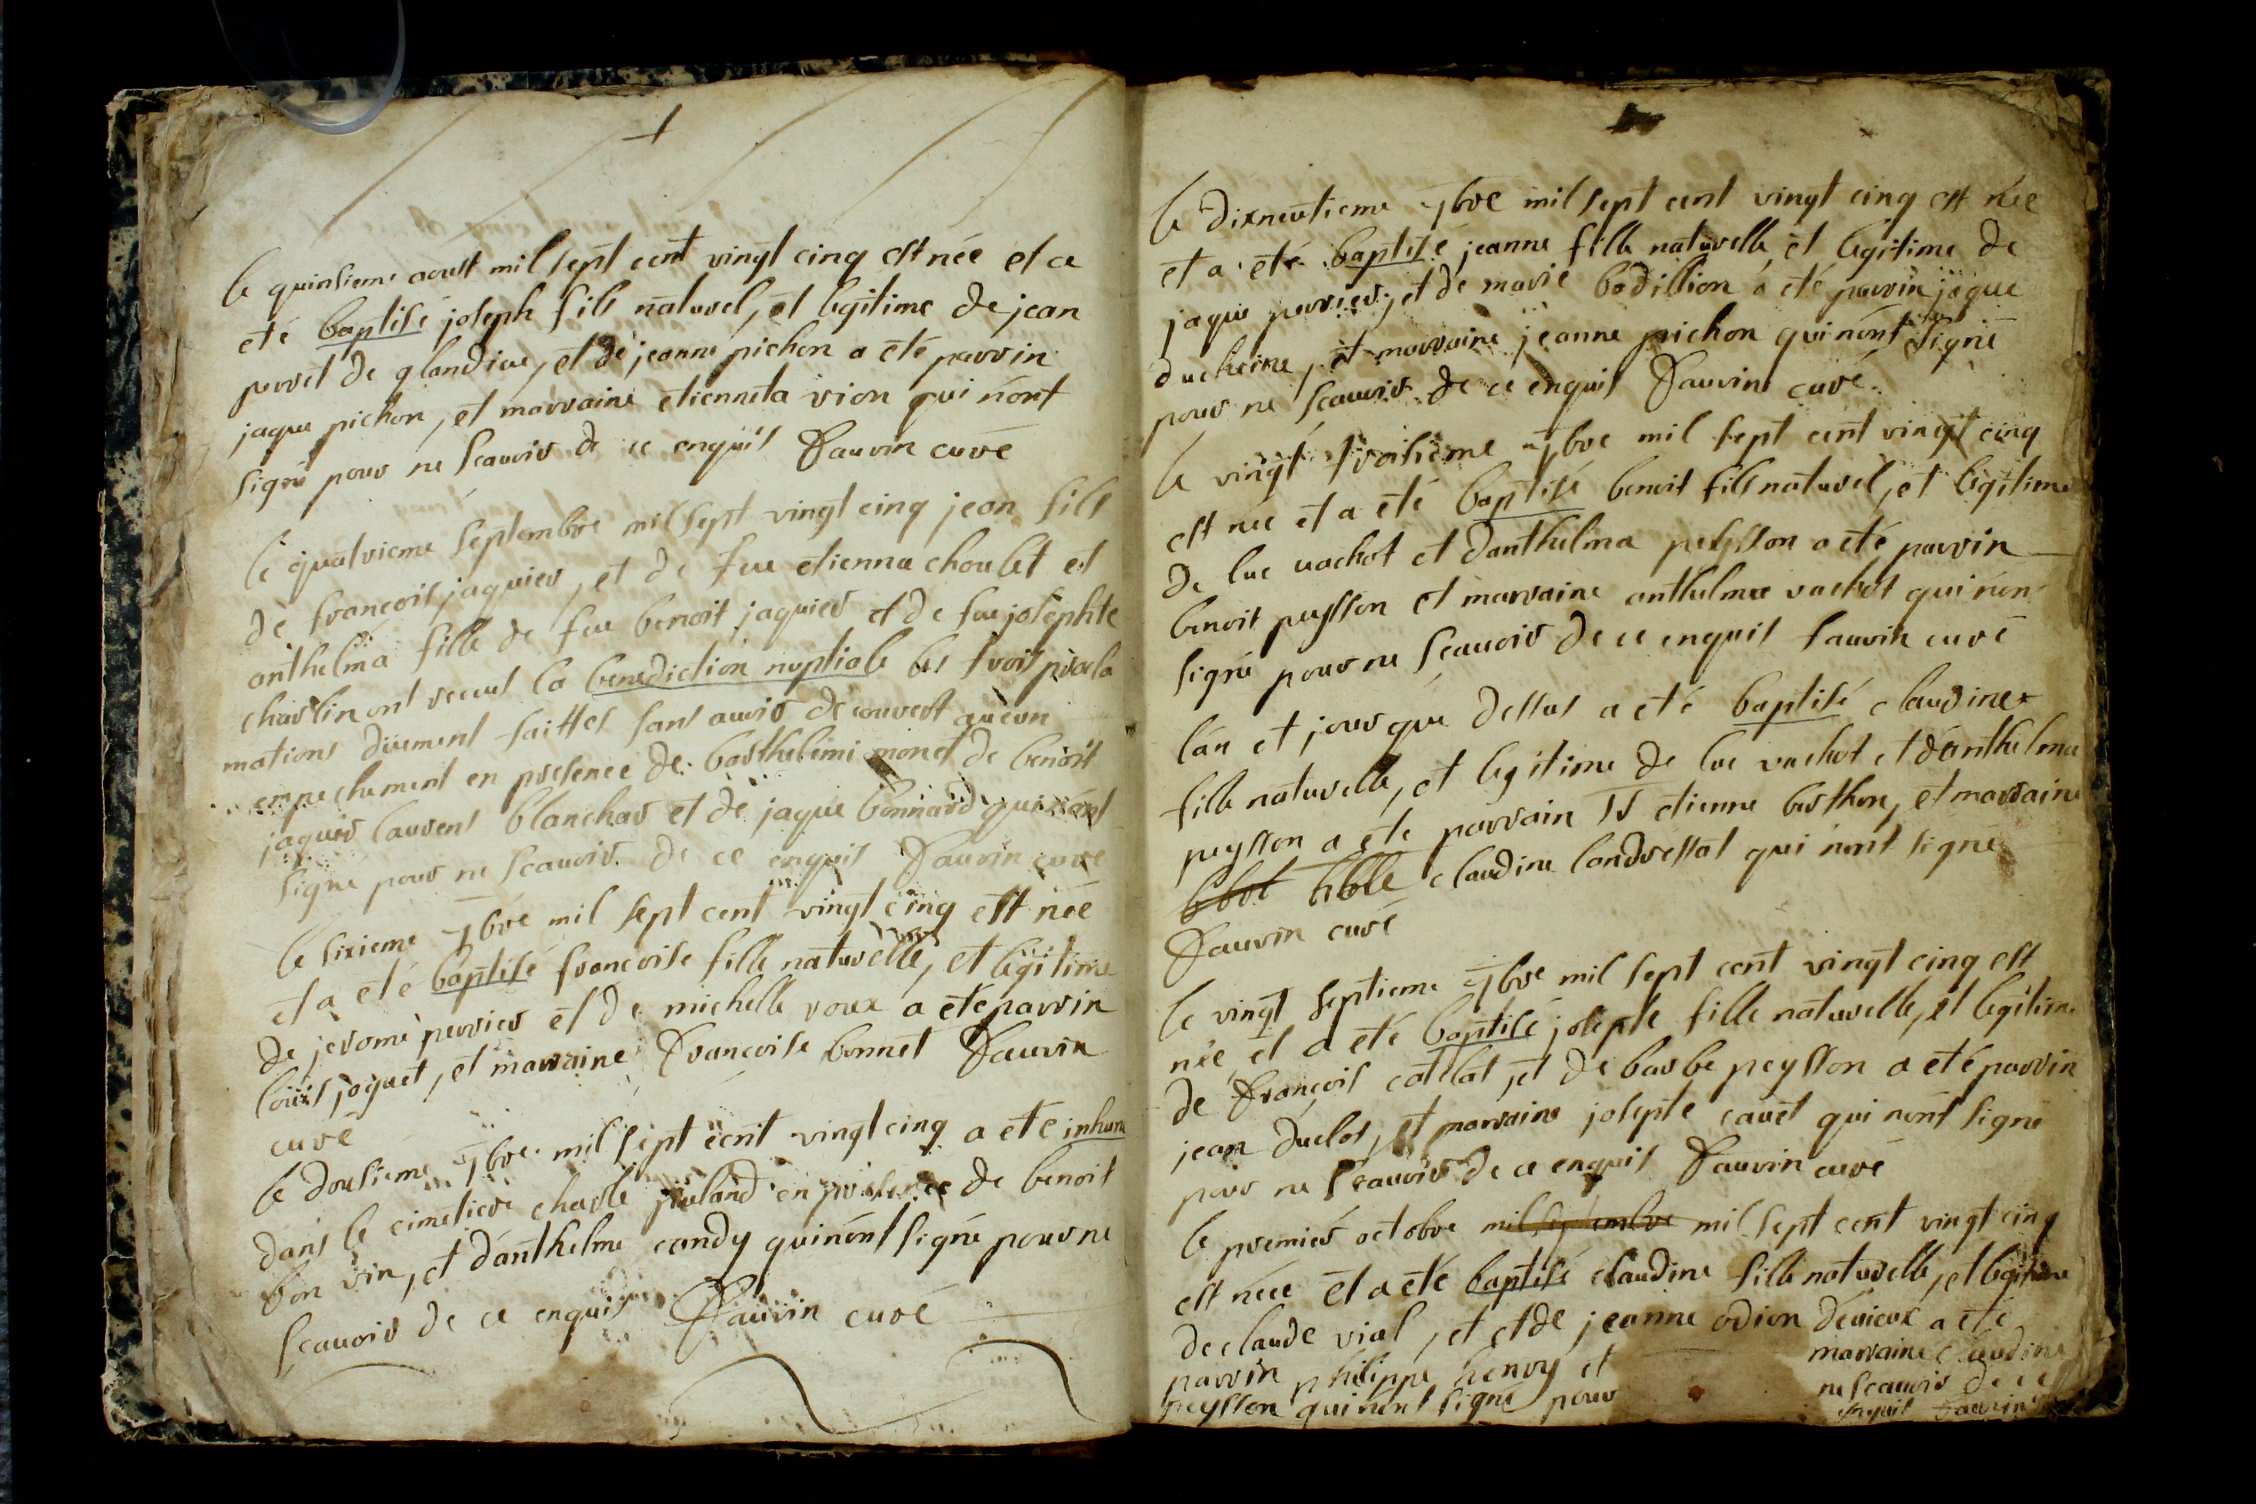 le quinsieme aoust mil sept cent vingt cinq est née et a
eté baptisé joseph fils naturel, et legitime de jean
perret de glandieu, et de jeanne pichon a eté parrin
jaque pichon, et marraine etienneta vion qui nont
signé pour ne scauoir de ce enquis Fauvin curé
le quatrieme septembre mil sept vingt cinq jean fils
de francois jaquier, et de feu etienna choulet et
anthelma fille de feu benoit jaquier et de feu josephte
charlin ont receus la benediction nuptiale les trois procla
mations düement faittes sans auoir decouvert aucun
empechement en presence de barthelemi monet de benoit
jaquier laurent blanchar et de jaque bonnard qui nont
signé pour ne scauoir de ce enquis Fauvin curé
le sixieme 7bre mil sept cent vingt cinq est née
et a eté baptisé francoise fille naturelle, et legitime
de jerome perrier et de michelle roux a eté parrin
louis joguet, et marraine francoise bonnet Fauvin
curé
le dousieme 7bre mil sept cent vingt cinq a eté inhumé
dans le cimetiere charle en presence de benoit
bon vin, et danthelme candy qui nont signé pour ne
scauoir de ce enquis Fauvin curé
le dixneutieme 7bre mil sept cent vingt cinq est née
et a eté baptisé jeanne fille naturelle, et legitime de
jaque perrier, et de marie badillion a eté parrin jaque
ducheine, et marraine jeanne pichon qui nont signé
pour ne scauoir de ce enquis Fauvin curé
le vingt troisieme 7bre mil sept cent vingt cinq
est née et a eté baptisé benoit fils naturel, et legitime
de luc vachot et danthelma peysson a eté parrin
benoit peysson et marraine anthelma vachot qui non
signé pour ne scauoir de ce enquis fauvin curé
lan et jour que dessus a eté baptisé claudine
fille naturelle, et legitime de luc vachot et danthelma
peysson a eté parrain Sr etienne berthon, et marraine
claudine landressat qui nont signé
Fauvin curé
le vingt septieme 7bre mil sept cent vingt cinq est
née et a eté baptisé josepte fille naturelle, et legitime
de François catelat, et de barbe peysson a eté parrin
jean duclos, et marraine josepte cauet qui nont signé
pour ne scauoir de ce enquis Fauvin curé
le premier octobre mil septembre mil sept cent vingt cinq
est née et a eté baptisé claudine fille naturelle, et legitime
de claude vial, et et de jeanne odion deuieux a eté
parrin philippe henry et marraine claudine
peysson qui nont signé pour ne scauoir de ce
enquis Fauvin